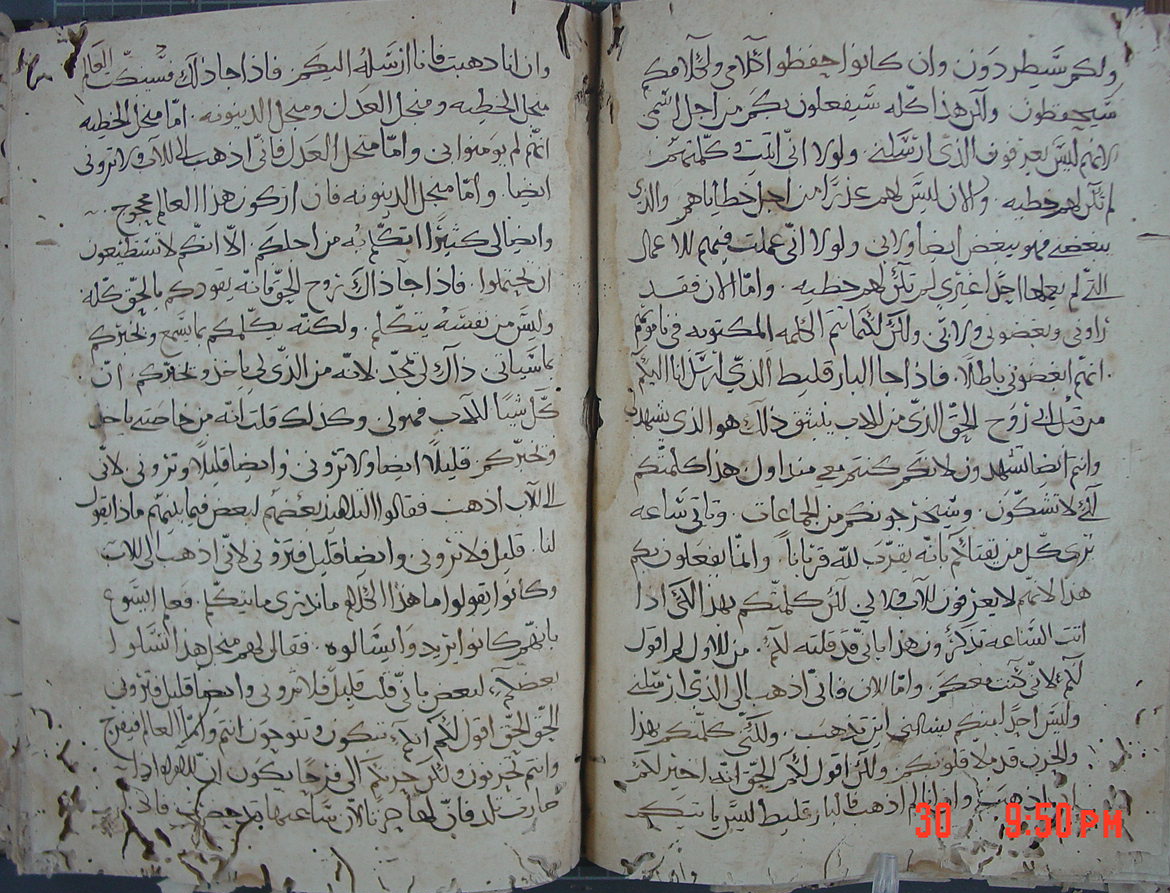 ولكم سيطردون وان كانوا حفظوا كلامي ولكلامكم
سيحفظون ولكن هذا كله سيفعلون بكم من اجل اسمي
لانهم ليس يعرفون الذي ارسلني ولولا اني اتيت وكلمتهم
لم تكن لهم خطيه والان ليس لهم عذرا من اجل خطاياهم والذي
يبغضني فهو يبغض ايضا ولابي ولولا اني عملت فيهم للاعمال
التي لم يعملها احدا غيري لم تكن لهم خطيه واما الان فقد
راوني وبغضوني ولابي ولكن لكيما تتم الكلمه المكتوبه في ناموسهم
انهم ابغضوني باطلا فاذا جا البارقليط الذي ارسل انا اليكم
من قبل الاب روح الحق الذي من الاب ينبثق ذلك هو الذي يشهد
وانتم ايضا تشهدون لانكم كنتم معي منذ اول هذا كلمتكم
لكي لا تشكون وسيخرجونكم من الجماعات وتاتي ساعه
يرى كل من يقتلكم بانه يقرب لله قربانا وانما يفعلون بكم
هذا لانهم لا يعرفون للاب ولا لي لكن كلمتكم بهذا لكي اذا
اتت الساعه تذكرون هذا باني قد قلته لكم من الاول لم اقول
لكم لاني كنت معكم واما الان فاني اذهب الى الذي ارسلني
وليس احدا منكم يسالني اين تذهب ولكني كلمتكم بهذا
والحزن قد ملا قلوبكم ولكن اقول لكم الحق انه اخير لكم
ان اذهب وان انا لم اذهب فالبارقليط ليس ياتيكم
وان انا
وان انا دهبت فانا ارسله اليكم فاذا جا ذاك فسيبكت العالم
منجل الخطيه ومنجل العدل ومنجل الدينونه اما منجل الخطيه
انهم لم يومنوا بي واما منجل العدل فاني اذهب الى للاب ولا تروني
ايضا واما منجل الدينونه فان اركون هذا العالم محجوج
وايضا لي كثيرا اتكلم به من اجلكم الا انكم لا تستطيعون
ان تحتملوا فاذا جا ذاك روح الحق فانه يقودكم بالحق كله
وليس من نفسه يتكلم ولكنه يكلمكم بما يسمع ويخبركم
بما سياتي ذاك لي يمجد لانه من الذي لي ياخذ ويخبركم ان
كل شيا للاب فهو لي وكذلك قلت انه من خاصته ياخذ
ويخبركم قليلا ايضا ولا تروني وايضا قليلا وتروني لاني
الى الاب اذهب فقالوا التلاميذ بعضهم لبعض فيما بينهم ماذا يقول
لنا قليل فلا تروني وايضا قليل فتروني لاني اذهب الى للاب
وكانوا يقولوا ما هذا القليل ما ندري ما يتكلم فعلم ايسوع
بانهم كانوا تريدوا يسالوه فقال لهم منجل هذا تسالوا
بعضكم لبعض باني قلت قليلا فلا تروني وايضا قليل فتروني
الحق الحق اقول لكم انكم تبكون وتنوحون انتم واما العالم فيفرح
وانتم تحزنون ولكن حزنكم الى فرحا يكون ان المراه اذا
صارت تلد فان لها حزنا لان ساعتها قد حضرت فاذا
30 9:50 PM